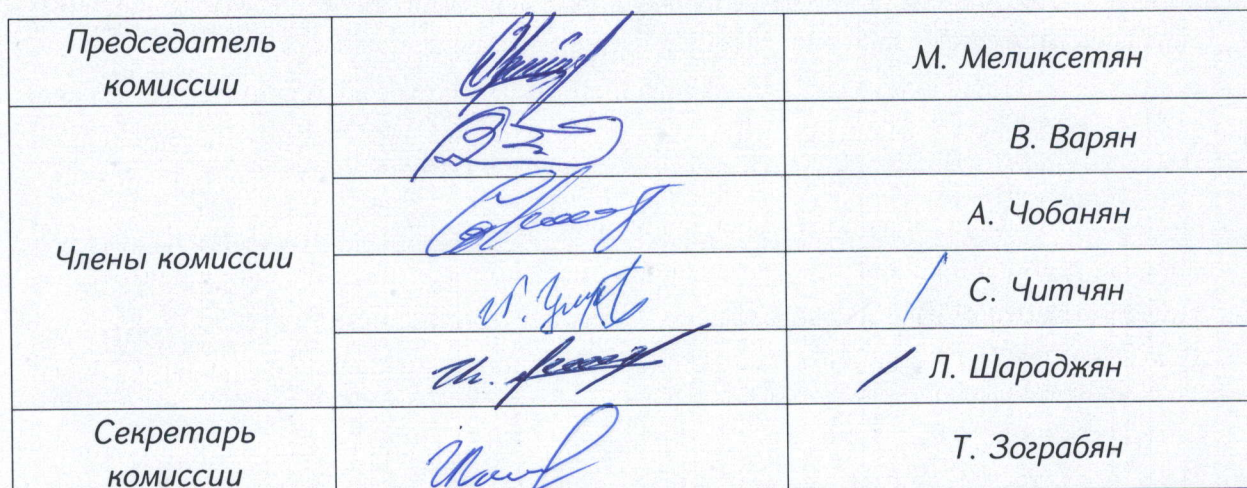 Председатель
комиссии
М. Меликсетян
Члены комиссии
В. Варян
А. Чобанян
С. Читчян
Л. Шараджян
Секретарь
комиссии
Т. Зограбян